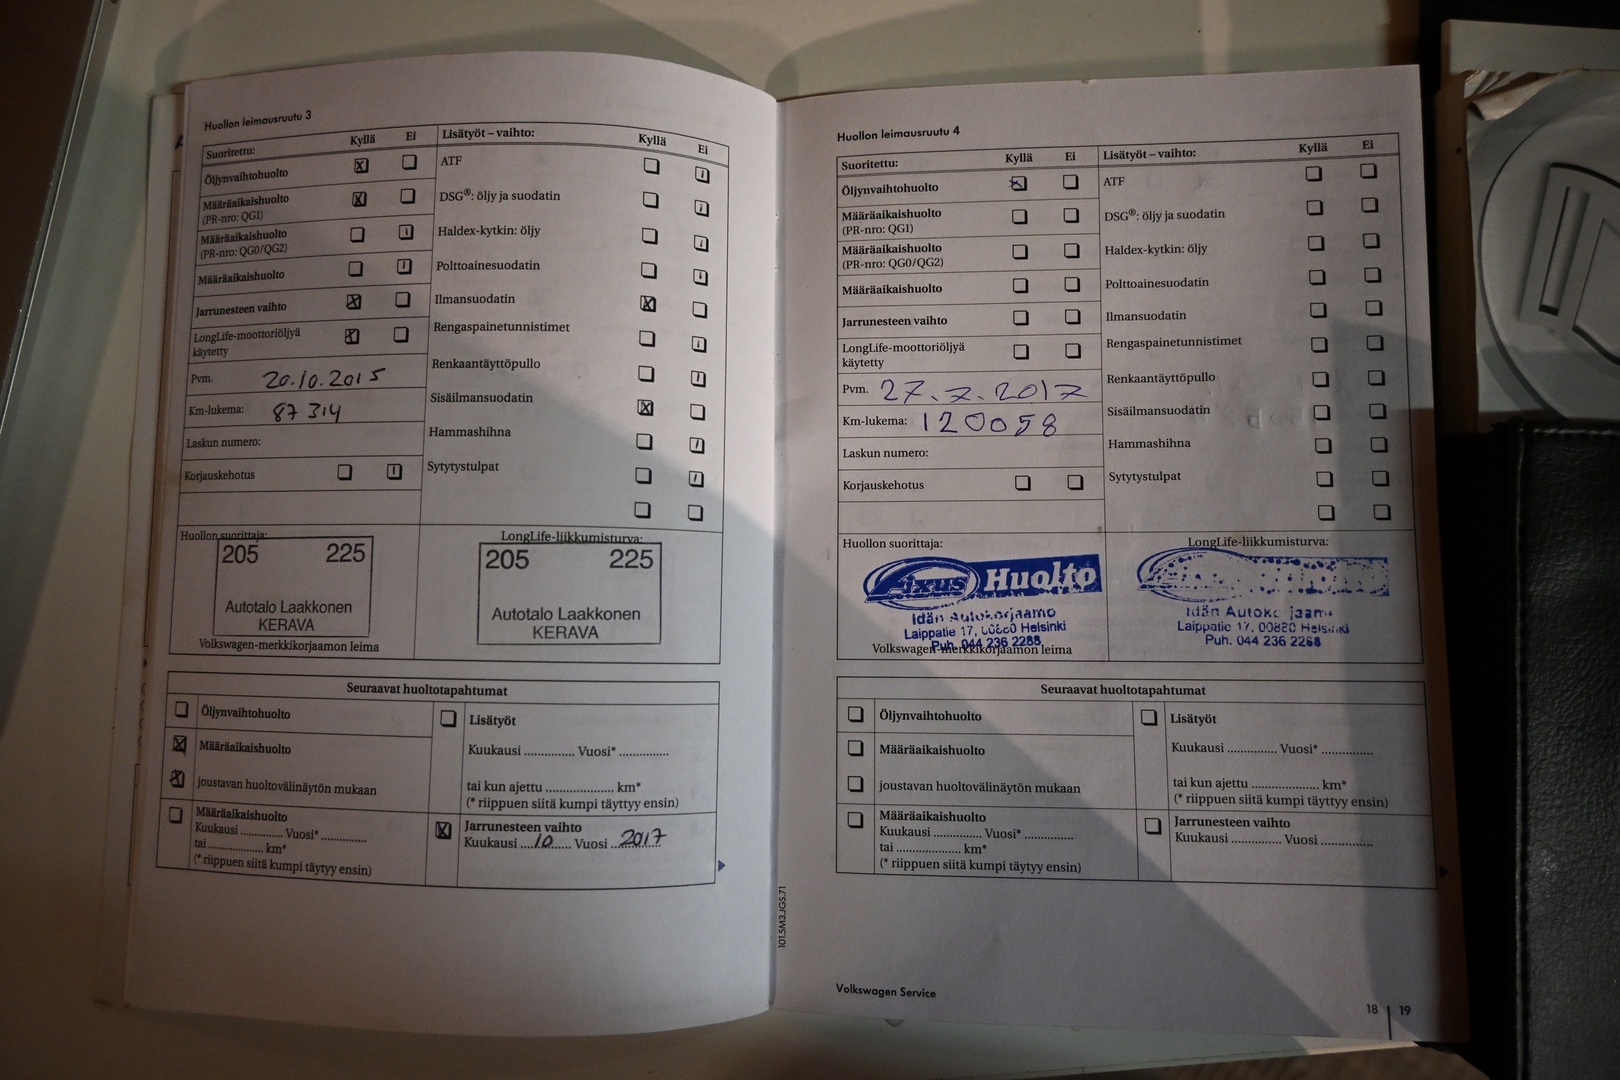 Huollon leimausruutu 3
Suoritettu: Kyllä Ei Lisätyöt – vaihto: Kyllä Ei
Öljynvaihtohuolto
Määräaikaishuolto
(PR-nro: QG1)
Määräaikaishuolto
(PR-nro: QG0/QG2)
Määräaikaishuolto
Jarrunesteen vaihto
LongLife-moottoriöljyä
käytetty
Pvm. 20.10.2015
Km-lukema: 87 314
Laskun numero:
Korjauskehotus
ATF
DSG®: öljy ja suodatin
Haldex-kytkin: öljy
Polttoainesuodatin
Ilmansuodatin
Rengaspainetunnistimet
Renkaantäyttöpullo
Sisäilmansuodatin
Hammashihna
Sytytystulpat
Huollon suorittaja:
205 225
Autotalo Laakkonen
KERAVA
Volkswagen-merkkikorjaamon leima
LongLife-liikkumisturva:
205 225
Autotalo Laakkonen
KERAVA
Seuraavat huoltotapahtumat
Öljynvaihtohuolto
Määräaikaishuolto
joustavan huoltovälinäytön mukaan
Määräaikaishuolto
Kuukausi .............. Vuosi* ...............
tai .................... km*
(* riippuen siitä kumpi täytyy ensin)
Lisätyöt
Kuukausi .............. Vuosi* ...............
tai kun ajettu .................... km*
(* riippuen siitä kumpi täytyy ensin)
Jarrunesteen vaihto
Kuukausi ....10....... Vuosi ..2017
101.5M3.JGS.71
Huollon leimausruutu 4
Suoritettu: Kyllä Ei Lisätyöt – vaihto: Kyllä Ei
Öljynvaihtohuolto
Määräaikaishuolto
(PR-nro: QG1)
Määräaikaishuolto
(PR-nro: QG0/QG2)
Määräaikaishuolto
Jarrunesteen vaihto
LongLife-moottoriöljyä
käytetty
Pvm. 27.7.2017
Km-lukema: 120058
Laskun numero:
Korjauskehotus
ATF
DSG®: öljy ja suodatin
Haldex-kytkin: öljy
Polttoainesuodatin
Ilmansuodatin
Rengaspainetunnistimet
Renkaantäyttöpullo
Sisäilmansuodatin
Hammashihna
Sytytystulpat
Huollon suorittaja:
Axus Huolto
Idän Autokorjaamo
Laippatie 17, 00880 Helsinki
Puh. 044 236 2288
Volkswagen-merkkikorjaamon leima
LongLife-liikkumisturva:
Idän Autoko jaam
Laippatie 17, 00880 Helsinki
Puh. 044 236 2288
Seuraavat huoltotapahtumat
Öljynvaihtohuolto
Määräaikaishuolto
joustavan huoltovälinäytön mukaan
Määräaikaishuolto
Kuukausi .............. Vuosi* ...............
tai .................... km*
(* riippuen siitä kumpi täytyy ensin)
Lisätyöt
Kuukausi .............. Vuosi* ...............
tai kun ajettu .................... km*
(* riippuen siitä kumpi täytyy ensin)
Jarrunesteen vaihto
Kuukausi .............. Vuosi ...............
Volkswagen Service
18 | 19